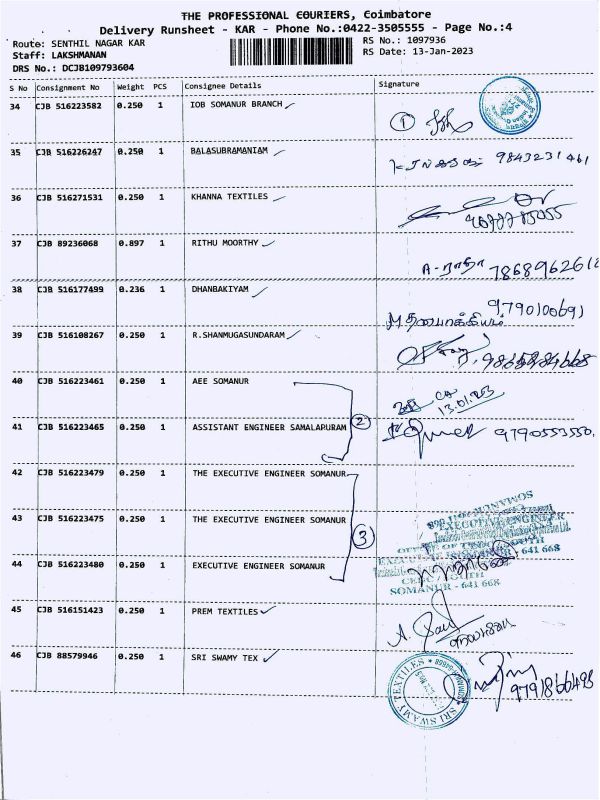 THE PROFESSIONAL COURIERS, Coimbatore
Delivery Runsheet - KAR - Phone No.:0422-3505555 - Page No.:4
Route: SENTHIL NAGAR KAR
RS No.: 1097936
Staff: LAKSHMANAN
RS Date: 13-Jan-2023
DRS No.: DCJB109793604
S No Consignment No Weight PCS Consignee Details Signature
34 CJB 516223582 0.250 1 IOB SOMANUR BRANCH ✓ 1
35 CJB 516226247 0.250 1 BALASUBRAMANIAM ✓ 9843231461
36 CJB 516271531 0.250 1 KHANNA TEXTILES ✓
37 CJB 89236068 0.897 1 RITHU MOORTHY ✓ A-ராதா 7868962612
38 CJB 516177499 0.236 1 DHANBAKIYAM ✓ 9790100691
M தனபாக்கியம்
39 CJB 516108267 0.250 1 R.SHANMUGASUNDARAM ✓
40 CJB 516223461 0.250 1 AEE SOMANUR
13.01.23
41 CJB 516223465 0.250 1 ASSISTANT ENGINEER SAMALAPURAM 2 9790553550.
42 CJB 516223479 0.250 1 THE EXECUTIVE ENGINEER SOMANUR
43 CJB 516223475 0.250 1 THE EXECUTIVE ENGINEER SOMANUR 3
EXECUTIVE ENGINEER
44 CJB 516223480 0.250 1 EXECUTIVE ENGINEER SOMANUR
SOMANUR - 641 668
45 CJB 516151423 0.250 1 PREM TEXTILES ✓
46 CJB 88579946 0.250 1 SRI SWAMY TEX ✓
SRI SWAMY TEXTILES
9791866498